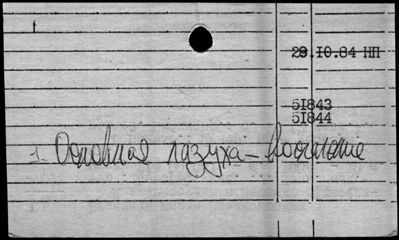 29.10.84 НП
51843
51844
1. Основная пазуха –